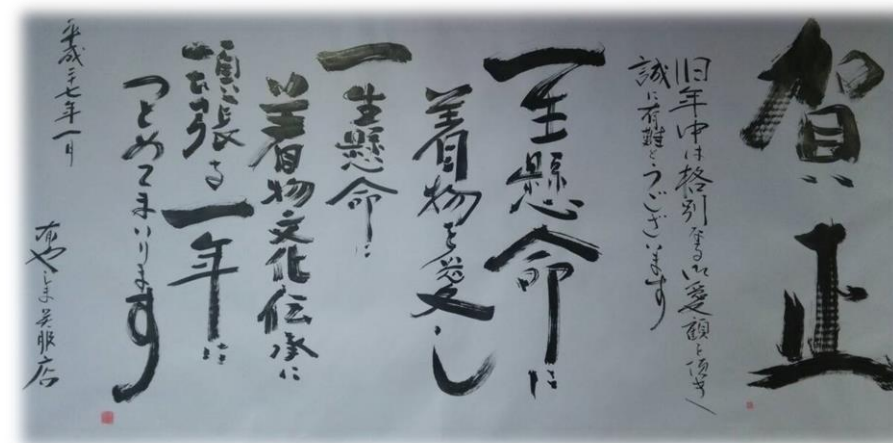 賀正
旧年中は格別なる御愛顧を頂き
誠に有難とうございます
一生懸命に
着物を愛し
一生懸命に
着物文化伝承に
頑張る一年に
つとめてまいります
平成二七年一月
呉服店